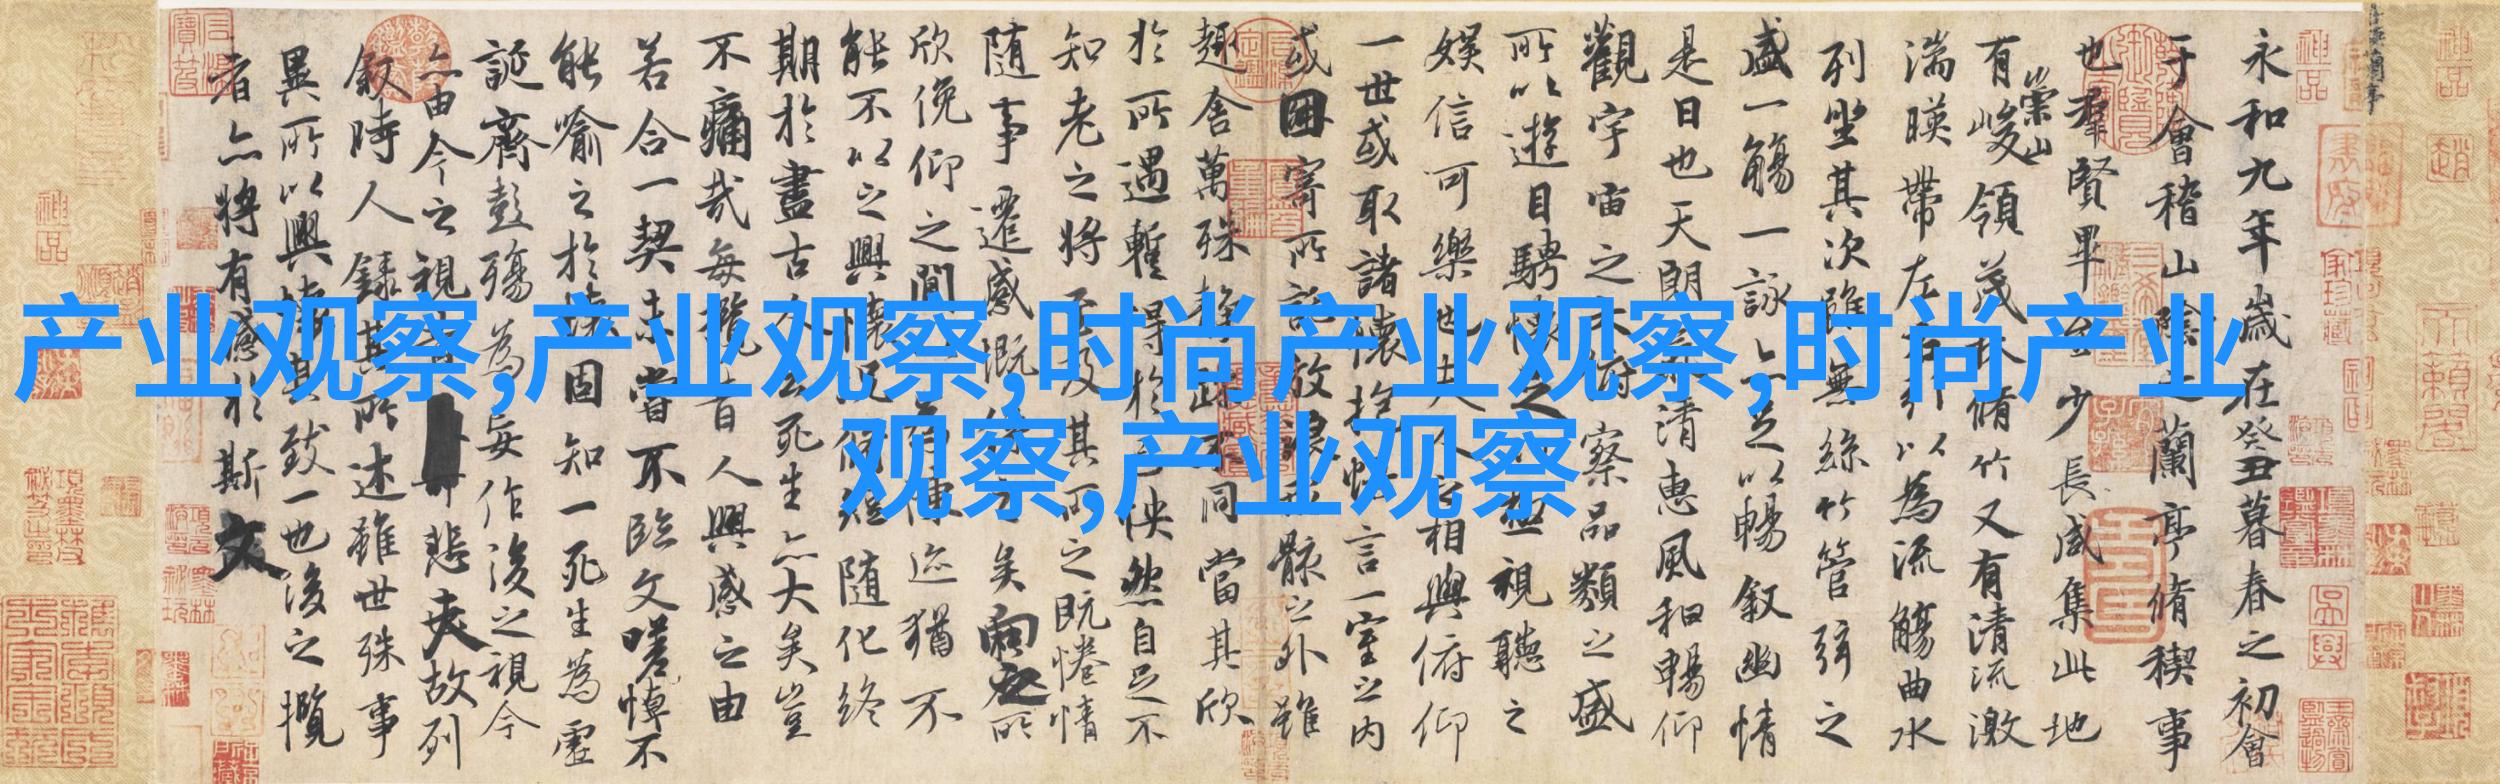 永和九年歲在癸丑暮春之初會
于會稽山陰之蘭亭脩稧事
也羣賢畢至少長咸集此地
有崇山峻領茂林脩竹又有清流激
湍暎帶左右引以為流觴曲水
列坐其次雖無絲竹管弦之
盛一觴一詠亦足以暢敘幽情
是日也天朗氣清惠風和暢仰
觀宇宙之大俯察品類之盛
所以遊目騁懷足以極視聽之
娛信可樂也夫人之相與俯仰
一世或取諸懷抱悟言一室之內
或因寄所託放浪形骸之外雖
趣舍萬殊靜躁不同當其欣
於所遇暫得於己怏然自足不
知老之將至及其所之既惓情
隨事遷感慨係之矣向之所
欣俛仰之間以為陳迹猶不
能不以之興懷況脩短隨化終
期於盡古人云死生亦大矣豈
不痛哉每攬昔人興感之由
若合一契未嘗不臨文嗟悼不
能喻之於懷固知一死生為虛
誕齊彭殤為妄作後之視今
亦由今之視昔悲夫故列
敘時人錄其所述雖世殊事
異所以興懷其致一也後之攬
者亦將有感於斯文
產业观察,产业观察,时尚产业观察,时尚产业
观察,产业观察